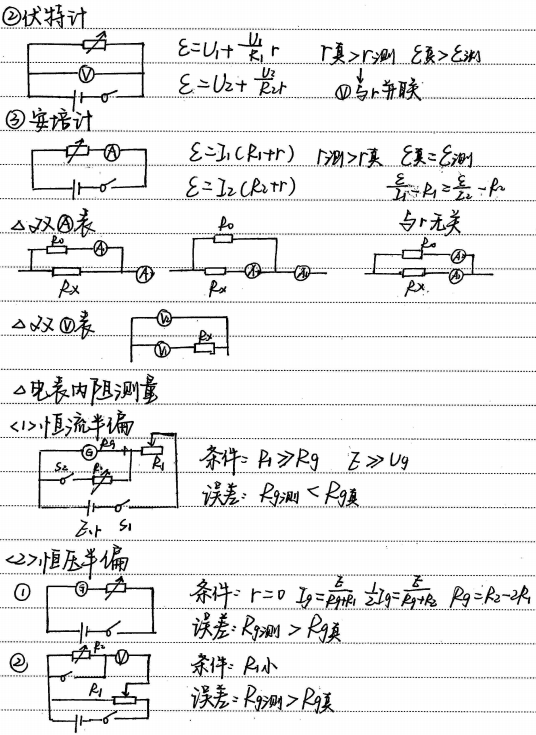 ②伏特计
ε=U₁+U₁/R₁ r r真>r测 ε真>ε测
ε=U₂+U₂/R₂ r Ⓥ与r并联
V
③安培计
A
ε=I₁(R₁+r) r测>r真 ε真=ε测
ε=I₂(R₂+r) ε/I₁-R₁=ε/I₂-R₂
与r无关
△双Ⓐ表
R₀ R₀ R₀
Rx Rx Rx
△双Ⓥ表
V₂
V₁ Rx
△电表内阻测量
<1>恒流半偏
G Rg R₁
S₂ R₂
E.r S₁
条件: R₁≫Rg E≫Ug
误差: Rg测<Rg真
<2>恒压半偏
① G
条件: r=0 Ig=E/Rg+R₁ ½Ig=E/Rg+R₂ Rg=R₂-2R₁
误差: Rg测>Rg真
② R₂ V
R₁
条件: R₁小
误差: Rg测>Rg真